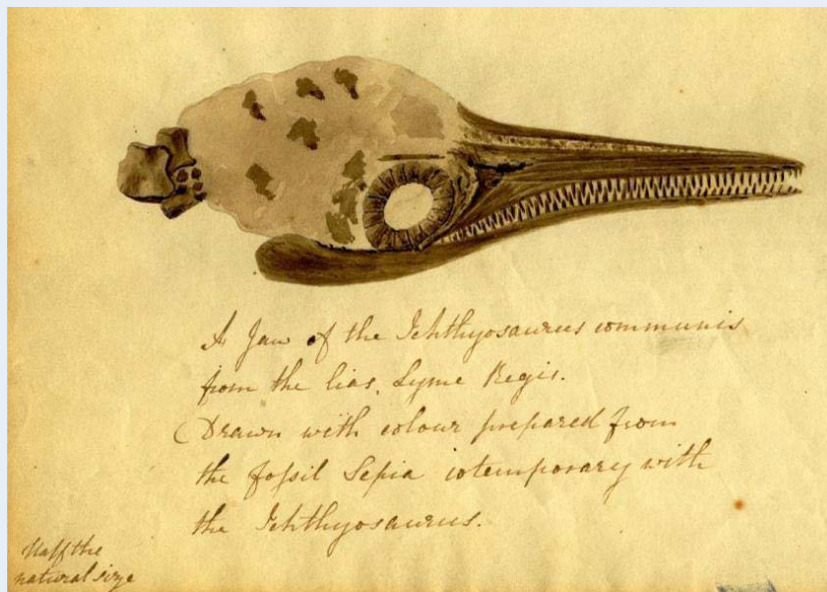 A Jaw of the Ichthyosaurus communis
from the lias, Lyme Regis.
Drawn with colour prepared from
the fossil Sepia cotemporary with
the Ichthyosaurus.
Half the
natural size